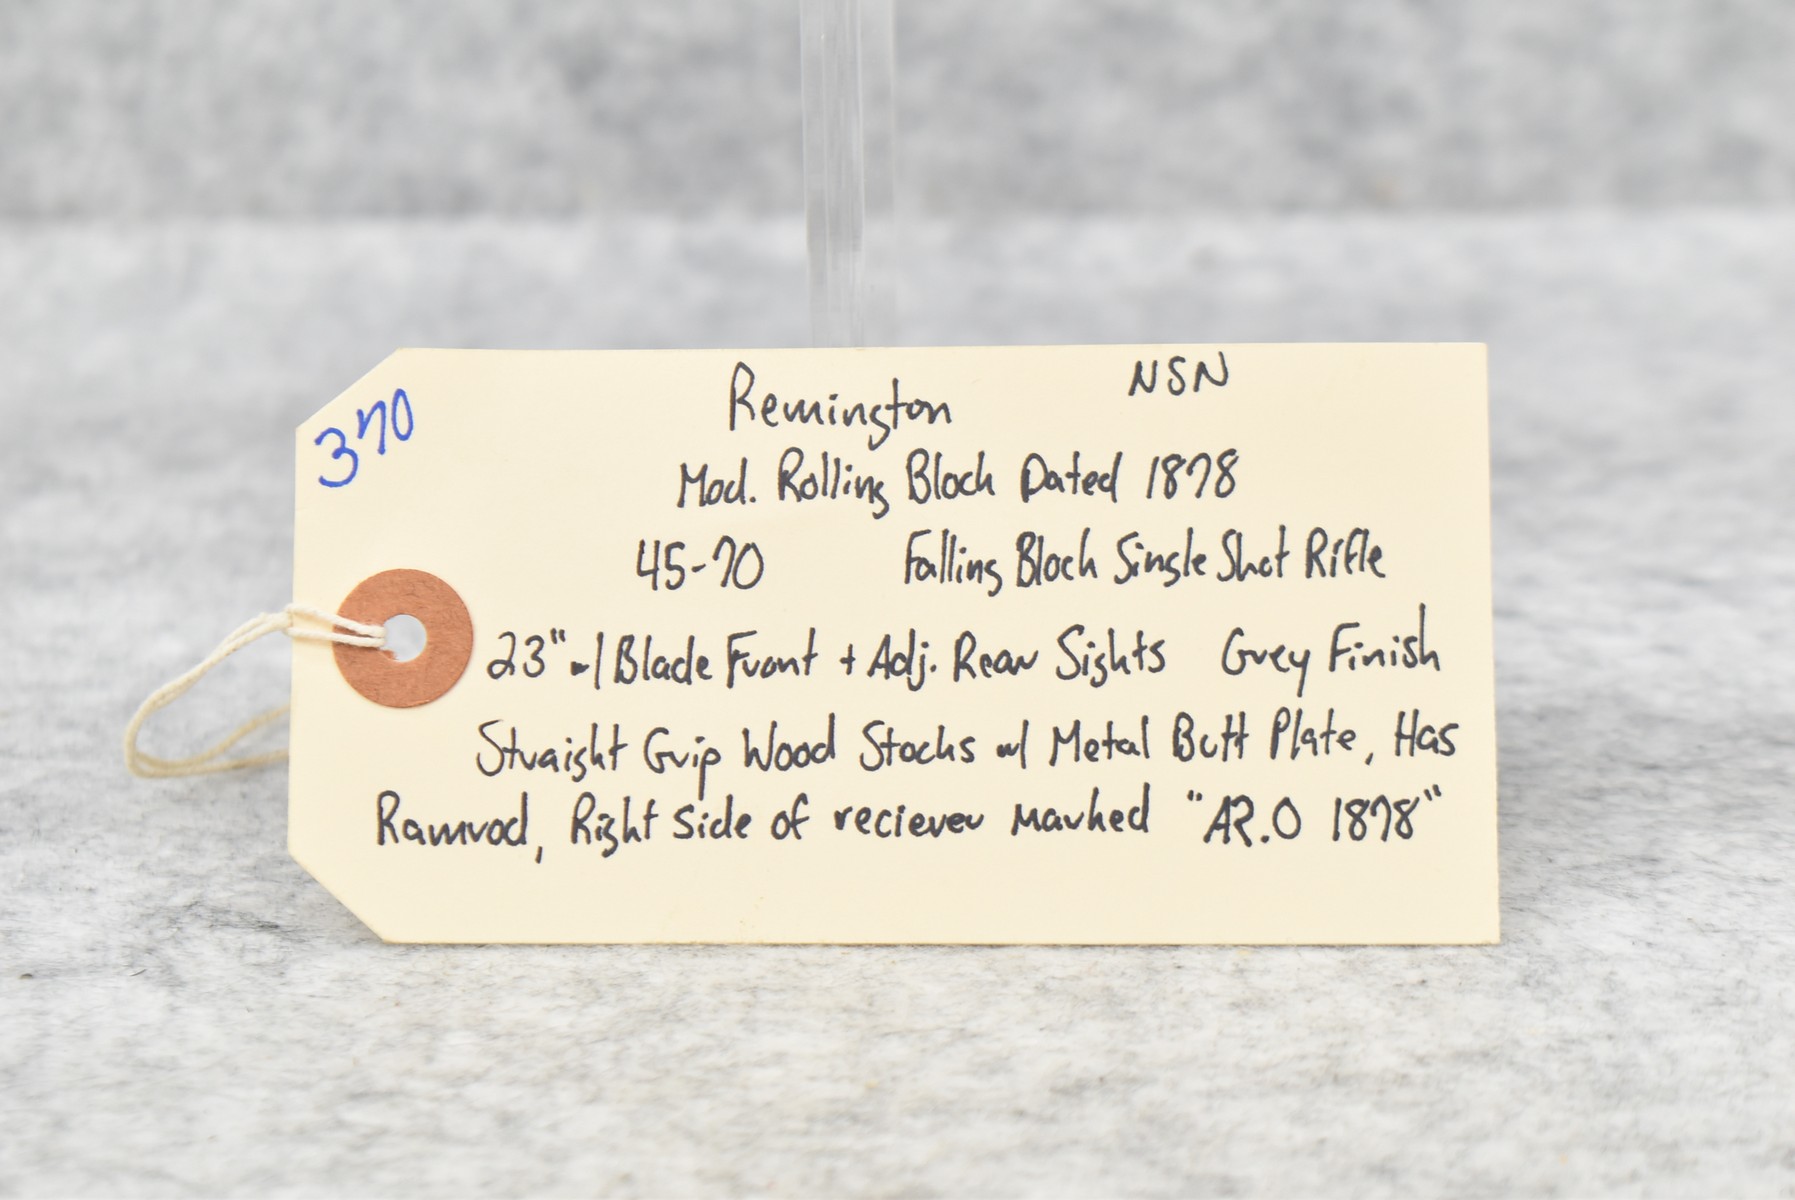 370
Remington NSN
Mod. Rolling Block Dated 1878
45-70 Falling Block Single Shot Rifle
23" w/ Blade Front + Adj. Rear Sights Grey Finish
Straight Grip Wood Stocks w/ Metal Butt Plate, Has
Ramrod, Right side of reciever marked "AR.O 1878"